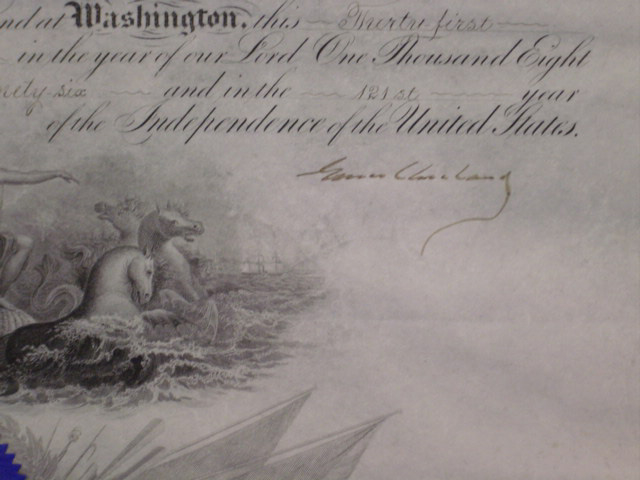 nd at Washington, this Thirty first
in the year of our Lord One Thousand Eight
nety six and in the 121st year
of the Independence of the United States.
Grover Cleveland